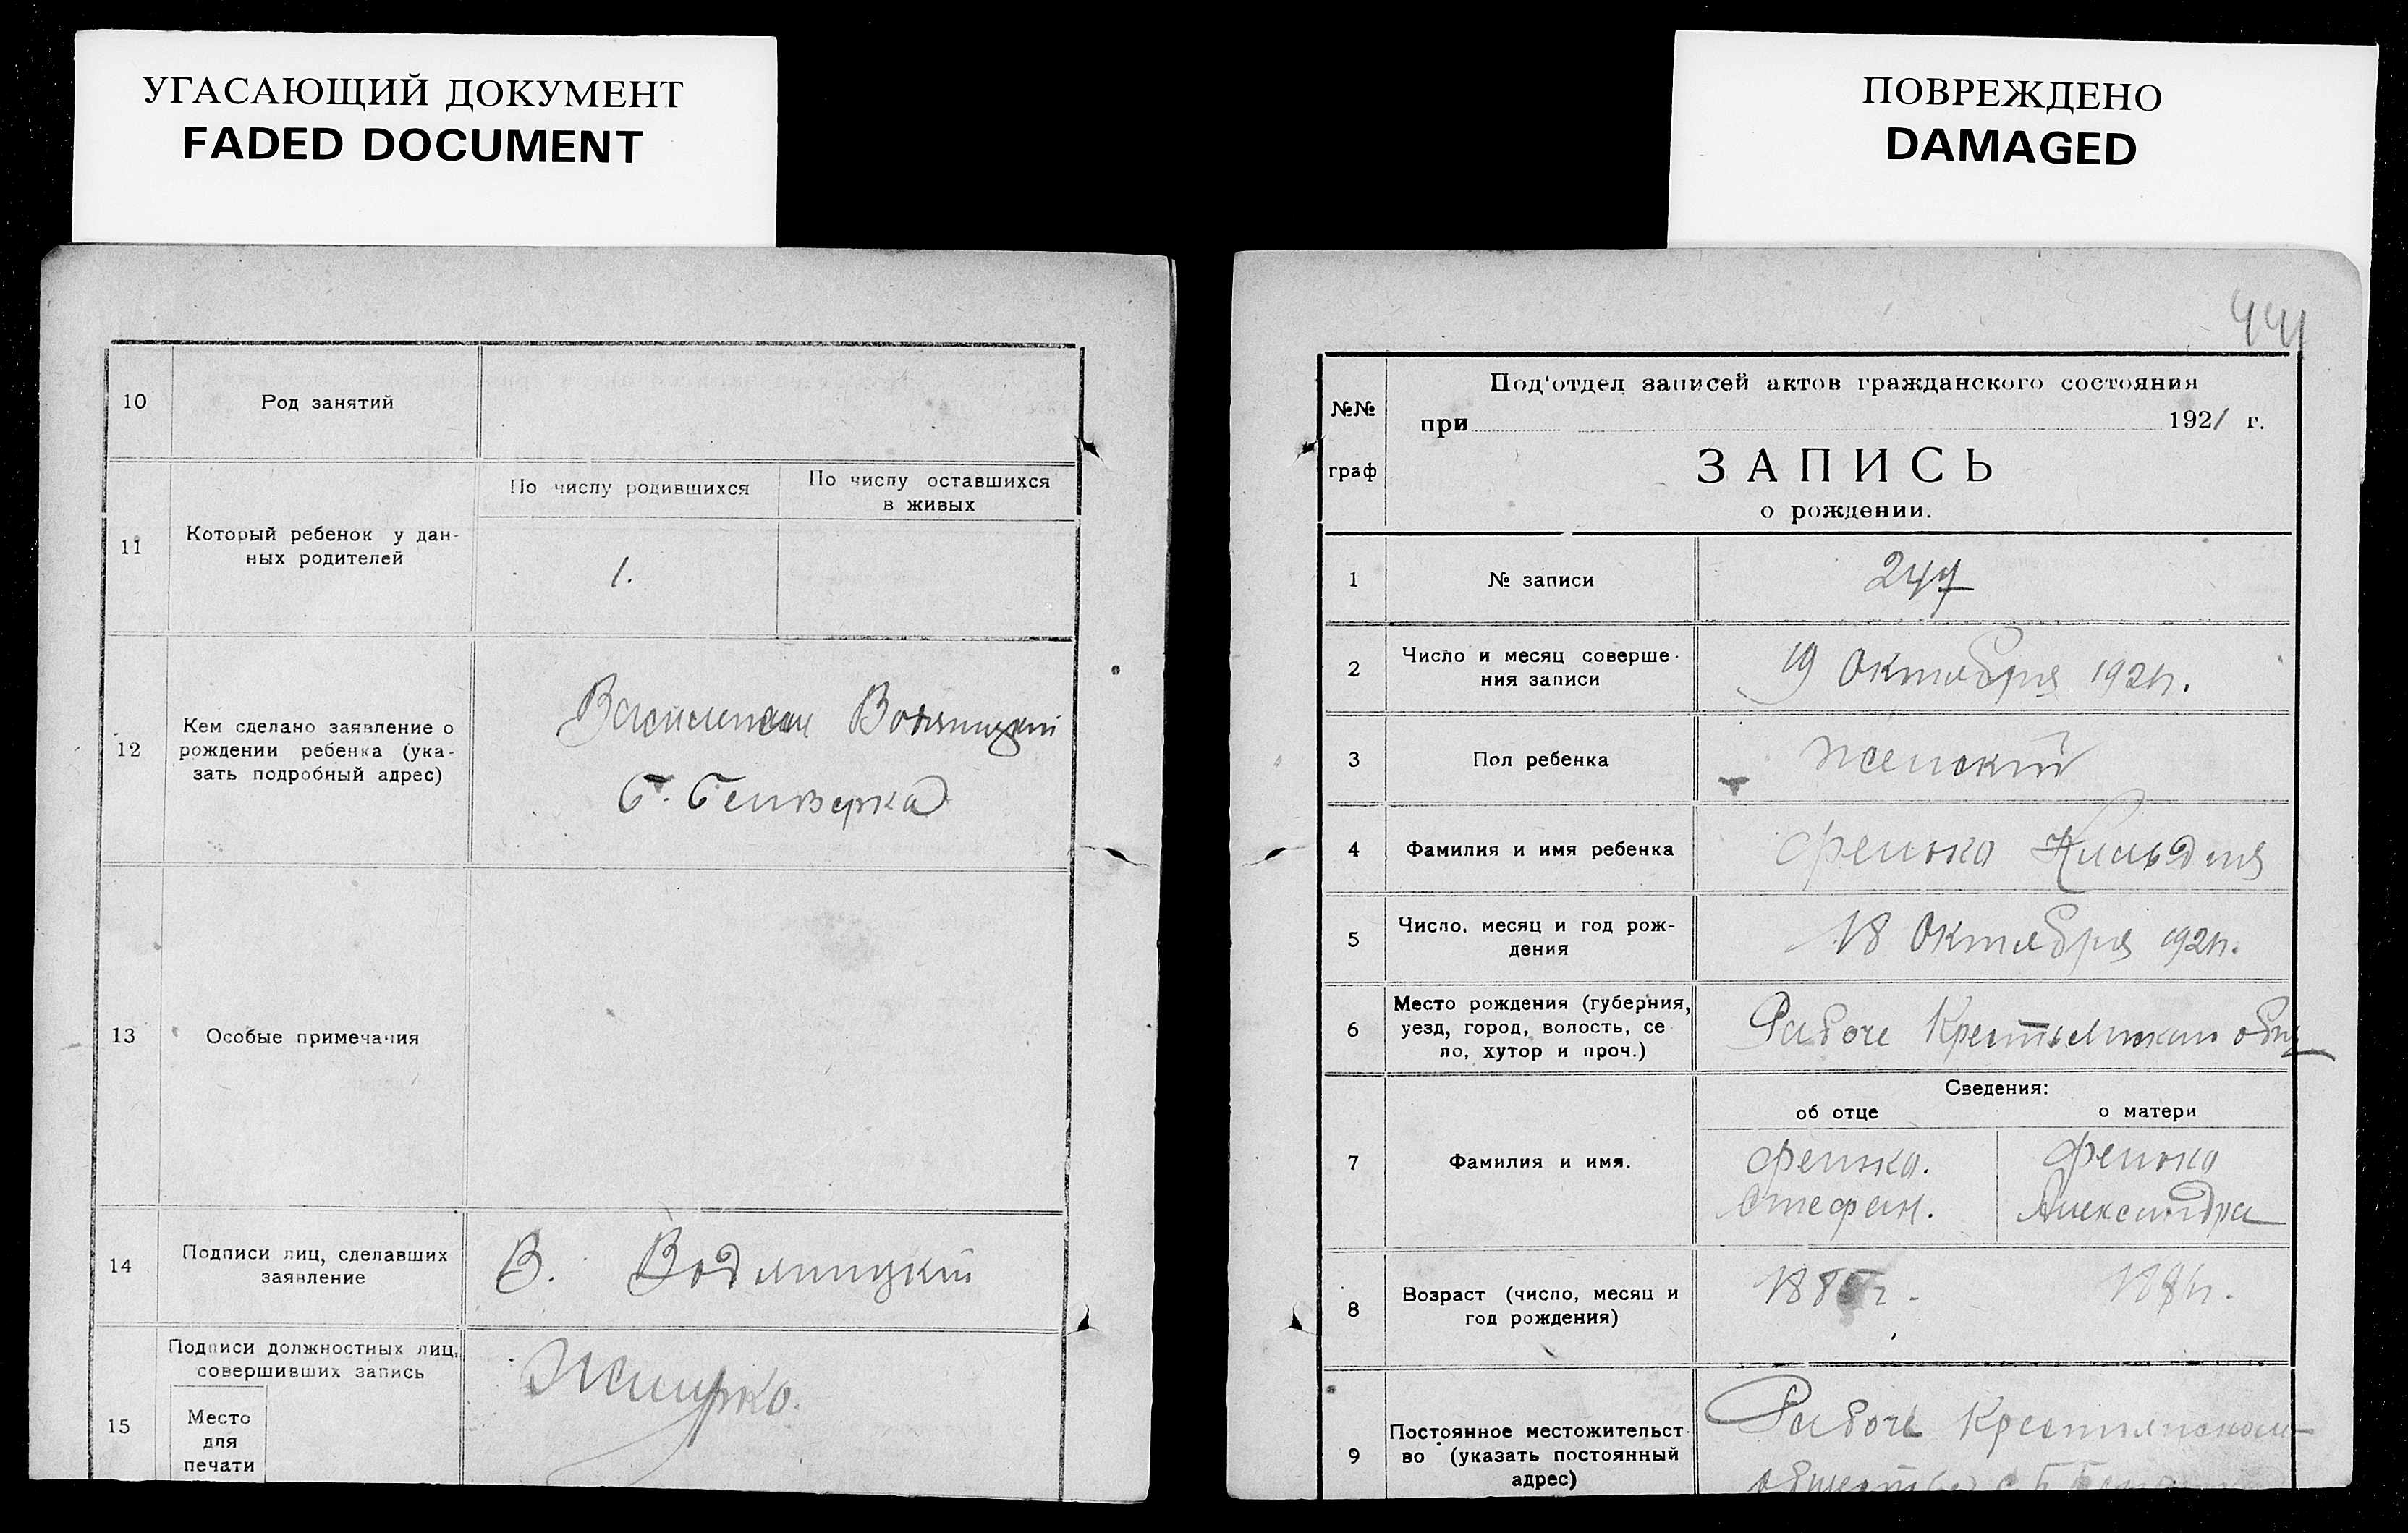 УГАСАЮЩИЙ ДОКУМЕНТ
FADED DOCUMENT
10 Род занятий
11 Который ребенок у дан-
ных родителей
По числу родившихся
По числу оставшихся
в живых
1.
12 Кем сделано заявление о
рождении ребенка (ука-
зать подробный адрес)
Водяницкий
13 Особые примечания
14 Подписи лиц, сделавших
заявление
В. Водяницкий
15 Подписи должностных лиц,
совершивших запись
Место
для
печати
ПОВРЕЖДЕНО
DAMAGED
441
№№
граф
Под'отдел записей актов гражданского состояния
при 1921 г.
ЗАПИСЬ
о рождении.
1 № записи
247
2 Число и месяц соверше-
ния записи
19 Октября 1921г.
3 Пол ребенка
женский
4 Фамилия и имя ребенка
Фенько
5 Число, месяц и год рож-
дения
18 Октября 1921г.
6 Место рождения (губерния,
уезд, город, волость, се
ло, хутор и проч.)
Рабоче
Сведения:
об отце
о матери
7 Фамилия и имя.
Фенько.
Стефан.
Фенько
Александра
8 Возраст (число, месяц и
год рождения)
9 Постоянное местожительст-
во (указать постоянный
адрес)
Рабоче